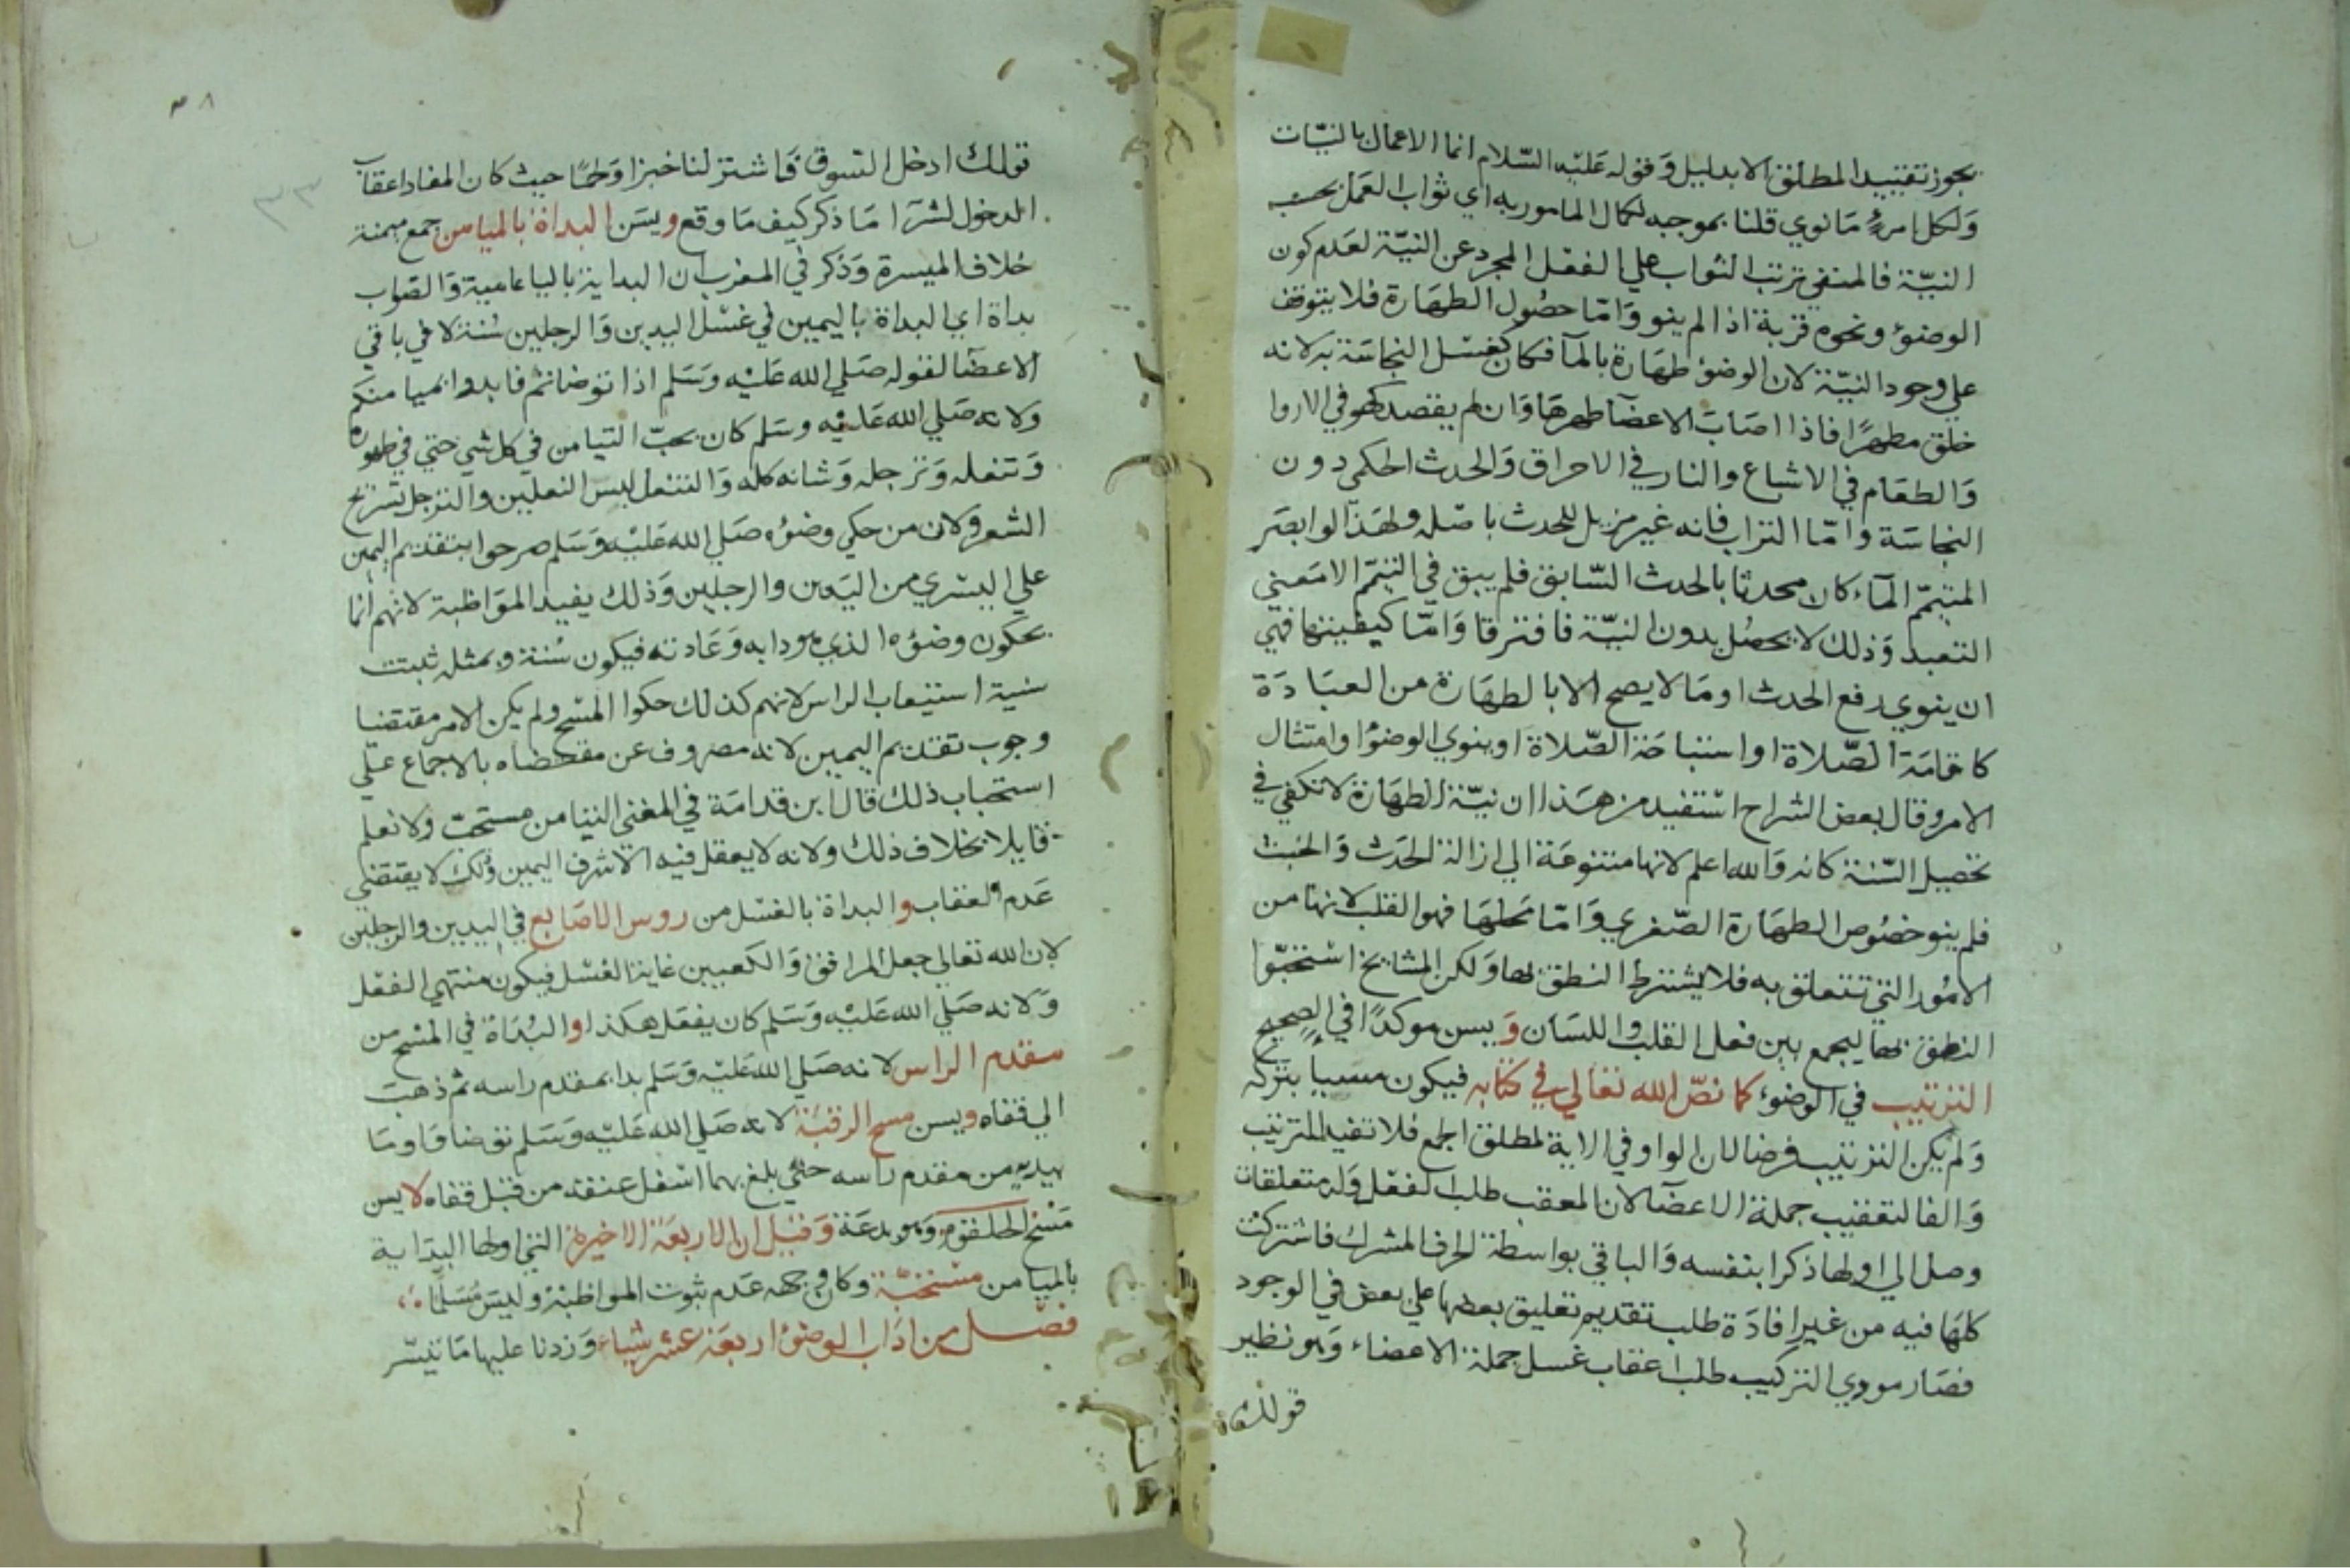 يجوز تقييد المطلق الا بدليل وَقوله عَليْه السّلام انما الاعمال بالنيّات
وَلكل امرءٍ مَا نوي قلنا بموجبه لكمال المامور به اي ثواب العَمل بحسب
النيّة فالمنفي ترتب الثواب علي الفعل المجرد عن النيّة لعَدم كون
الوضوُ ونحوه قربة اذا لم ينو وَامّا حصُول الطهَارة فلا يتوقف
علي وجود النيّة لان الوضوُ طهَارة بالمآ فكان كغسْل النجاسَة به لانه
خلق مطهرًا فاذا اصَابَ الاعضآ طهرهَا وَان لم يقصد كهو في الاروا
وَالطعَام في الاشباع والنار في الاحراق وَالحدث الحكمي دون
النجاسَة وامّا التراب فانه غير مزيل للحدث باصْله ولهَذا لو ابصَر
المتيمّم المآء كان محدثا بالحدث السّابق فلم يبق في التيمّم الا مَعني
التعبد وَذلك لا يحصُل بدون النيّة فافترقا وَامّا كيفيتها فهي
ان ينوي رفع الحدث او مَا لا يصح الا بالطهَارة من العبَادَة
كاقامَة الصّلاة او استباحَة الصّلاة او ينوي الوضوُ او امتثال
الامر وقال بعض الشراح اسْتفيد من هَذا ان نيّة الطهَارَة لا تكفي في
تحصيل السّنة كانه وَالله اعلم لانها متنوعَة الي ازالة الحَدَث وَالخبث
فلم ينو خصُوص الطهَارة الصّغري وَامّا محلهَا فهو القلب لانها من
الامُور التي تتعلق به فلا يشترط النطق بها وَلكن المشايخ اسْتحبّوا
النطق بها ليجمع بين فعل القلب واللسَان وَيسن موكدًا في الصحيح
الترتيب في الوضوء كما نصّ الله تعالي في كتابه فيكون مسيا بتركه
وَلم يكن الترتيب فرضا لان الواو في الاية لمطلق الجمع فلا تفيد الترتيب
وَالفا لتعقيب جملة الاعضآ لان المعقب طلب الفعْل وَله متعلقات
وصل الي اولها ذكرا بنفسه وَالباقي بواسطة الحرف المشرك فاشتركت
كلهَا فيه من غير افادَة طلب تقديم تعليق بعضها علي بعض في الوجود
فصَار مودي التركيب طلب اعقاب غسل جملة الاعضاء وَهو نظير
قولك
٣٨
٣٣
قولك ادخل السّوق فَاشتر لنا خبزا وَلحمًا حيث كان المفاد اعقاب
الدخول لشرَا مَا ذكر كيف مَا وقع ويسَن البداة بالميامن جمع ميمنة
خلاف الميسرة وَذكر في المغرب ان البداية باليا عامية وَالصّواب
بداة اي البداة باليمين في غسْل اليدين وَالرجلين سُنة لا في باقي
الاعضآ لقوله صَلي الله عَليْه وَسَلم اذا توضاتم فابدوا بميامنكم
وَلانه صَلي الله عَليْه وسَلم كان يحبّ التيامن في كل شي حتي في طهوره
وَتنعله وَترجله وَشانه كله وَالتنعل لبس النعلين والترجل تسريح
الشعر وَلان من حكي وضوُه صَلي الله عَليْه وَسَلم صرحوا بتقديم اليمين
علي اليسْري من اليَدين والرجلين وَذلك يفيد الموَاظبة لانهم انما
يحكون وضوُه الذي هو دابه وَعَادته فيكون سُنة وبمثله ثبتت
سنية استيعاب الراس لانهم كذلك حكوا المسْح ولم يكن الامر مقتضيا
وجوب تقديم اليمين لانه مصروف عن مقتضاه بالاجماع عَلي
استحباب ذلك قال ابن قدامَة في المغني التيامن مستحبّ ولا نعلم
قايلا بخلاف ذلك ولانه لا يعقل فيه الا شرف اليمين وذلك لا يقتضي
عَدم العقاب والبداة بالغسْل من روس الاصَابع في اليدين والرجلين
لان الله تعالي جعل المرافق وَالكعبين غاية الغسْل فيكون منتهي الفعْل
وَلانه صَلي الله عَليْه وَسَلم كان يفعَل هكذا والبُدَاة في المسْح من
مقدم الراس لانه صَلي الله عَليْه وَسَلم بدا بمقدم راسه ثم ذهبَ
الي قفاه ويسن مسح الرقبَة لانه صَلي الله عَليْه وَسَلم توضا وَاومَا
بيديه من مقدم راسه حتي بلغ بهما اسْفل عنقه من قبل قفاه لا يسن
مَسْح الحلقوم وَهو بدعَة وَقيْل ان الاربعَة الاخيرة التي اولها البدَاية
بالميامن مسْتحبّة وكان وجهه عَدم ثبوت المواظبة وليسَ مُسَلمًا
فصْل من ادَاب الوضوُ اربعَة عشر شيًا وَزدنا عليها مَا تيسّر